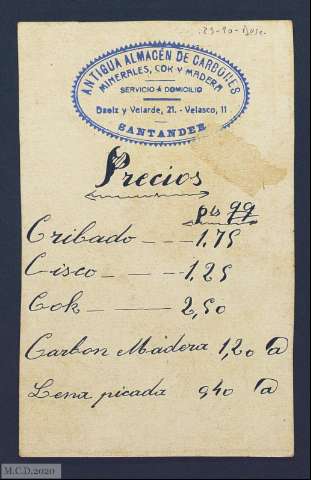 23-90-Dose.
ANTIGUA ALMACÉN DE CARBONES
MINERALES, COK Y MADERA
SERVICIO Á DOMICILIO
Daoiz y Velarde, 21. - Velasco, 11
SANTANDER
Precios
pts qq
Cribado - - - 1,75
Cisco - - - 1,25
Cok - - 2,50
Carbon Madera 1,20 @
Lena picada 0,40 @
M.C.D.2020